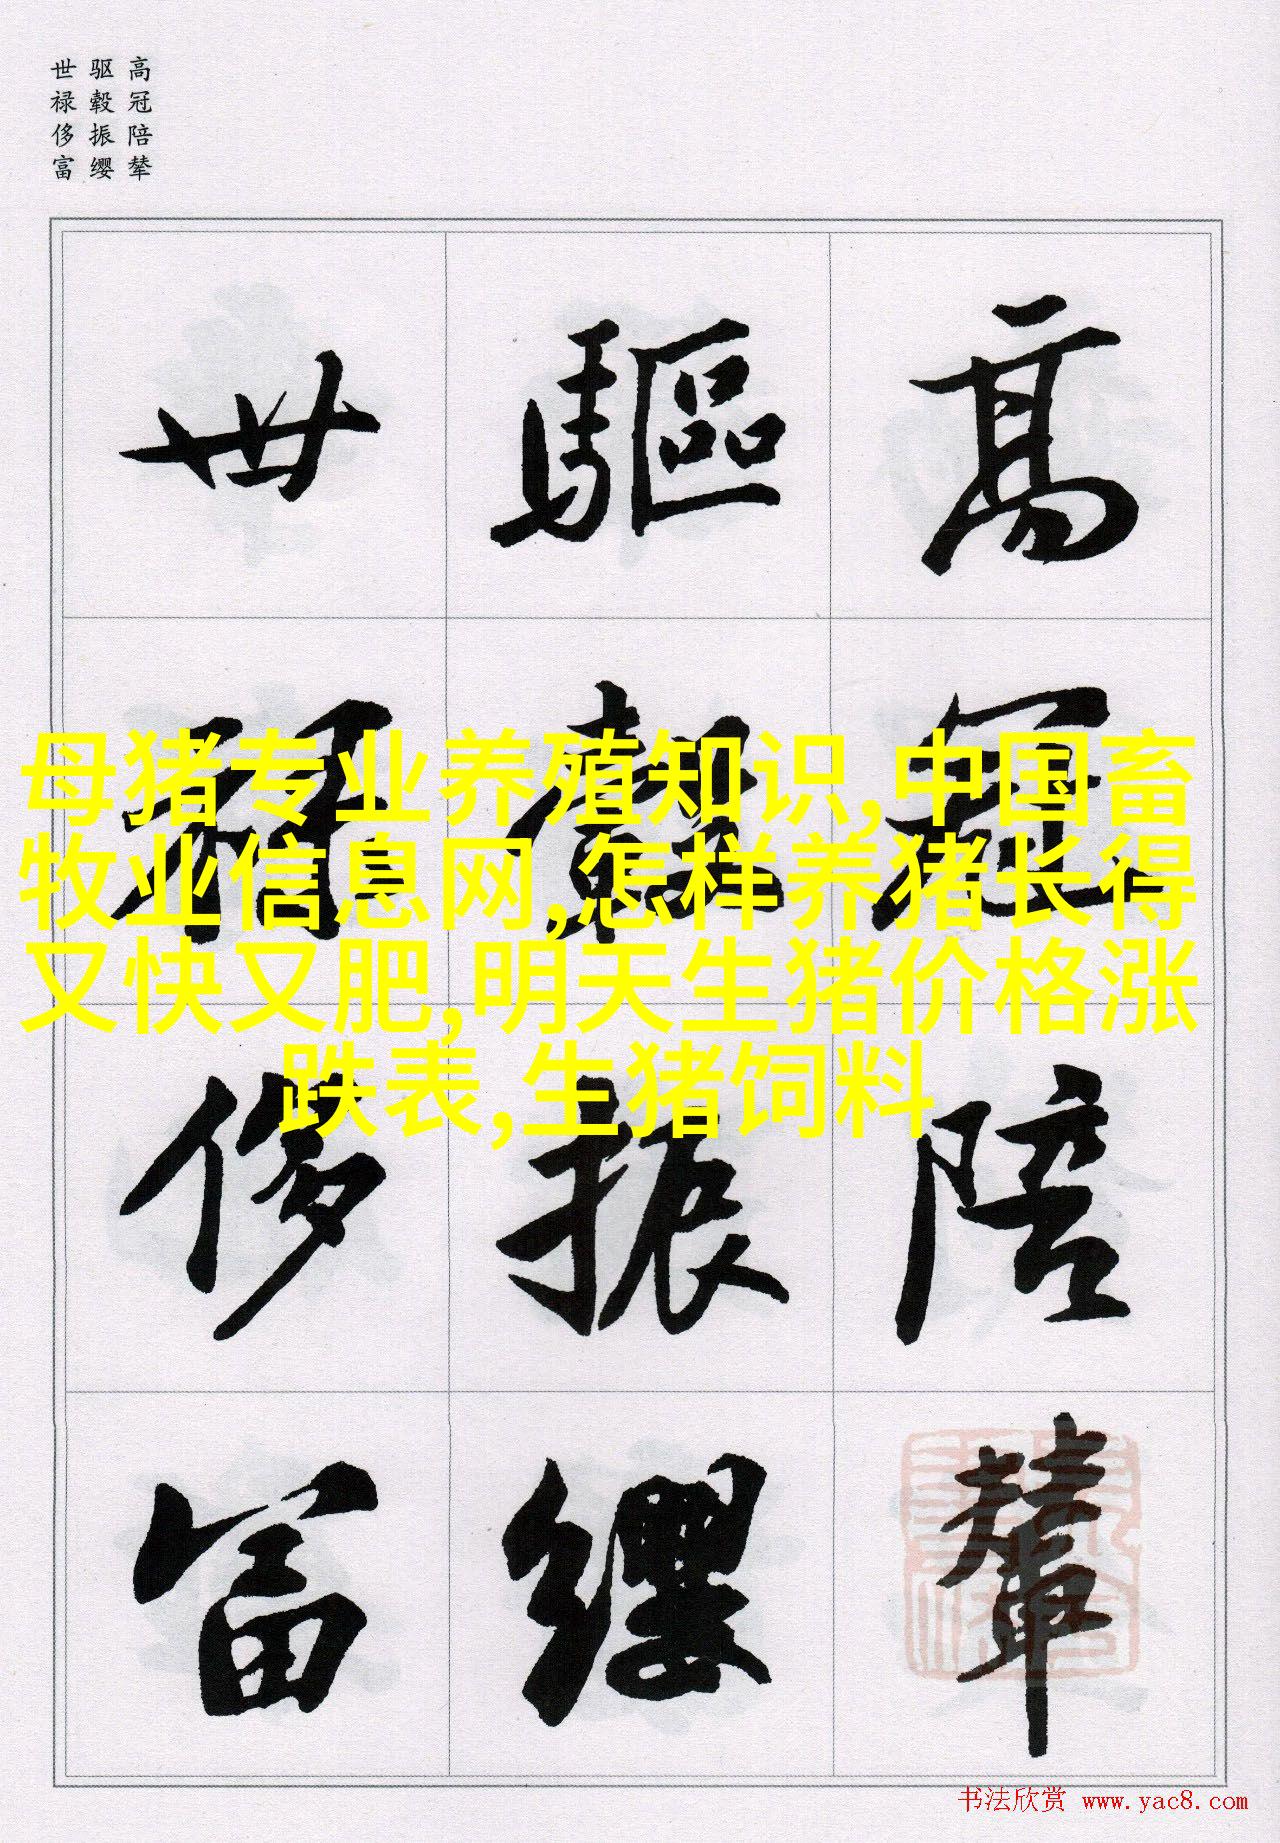 高冠陪辇
驱毂振缨
世禄侈富
高冠陪輦
驅轂振纓
世禄侈富
母猪专业养殖知识,中国畜
牧业信息网,怎样养猪长得
又快又肥,明天生猪价格涨
跌表,生猪饲料
书法欣赏 www.yac8.com